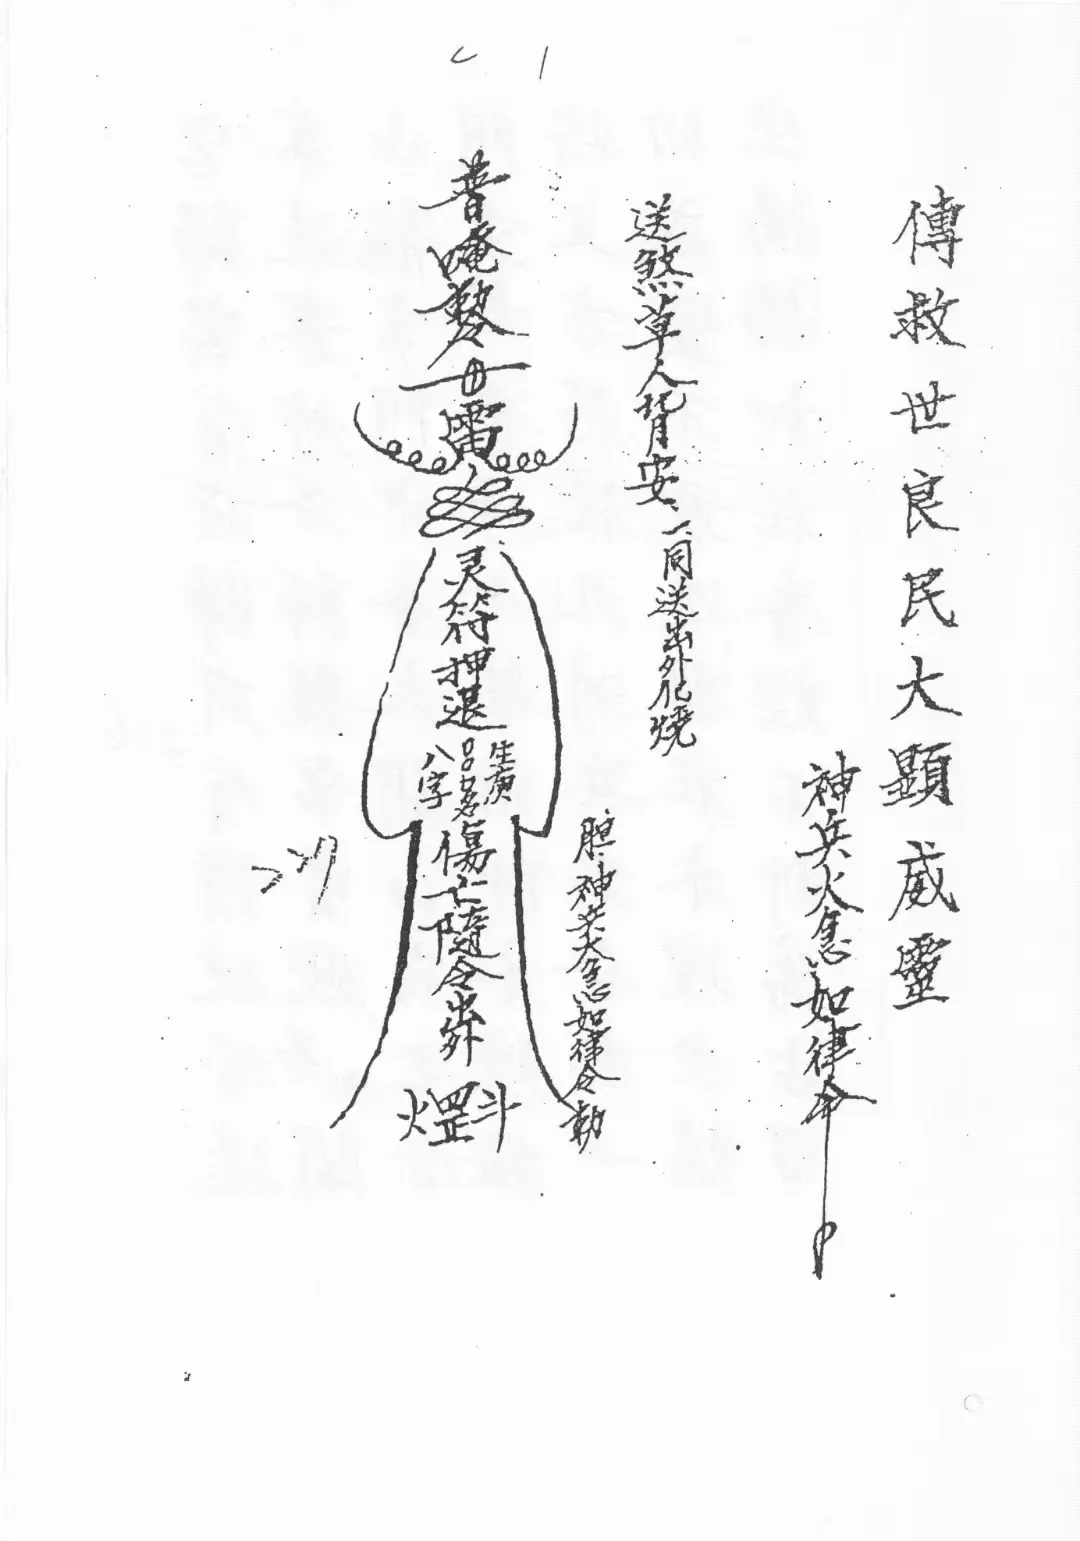 傳救世良民大顯威靈
神兵火急如律令
送煞草人背安一同送出外化燒
神兵火急如律令勅
普唵敕令
雷
灵符押退
生庚
八字
傷亡隨令出外
罡斗